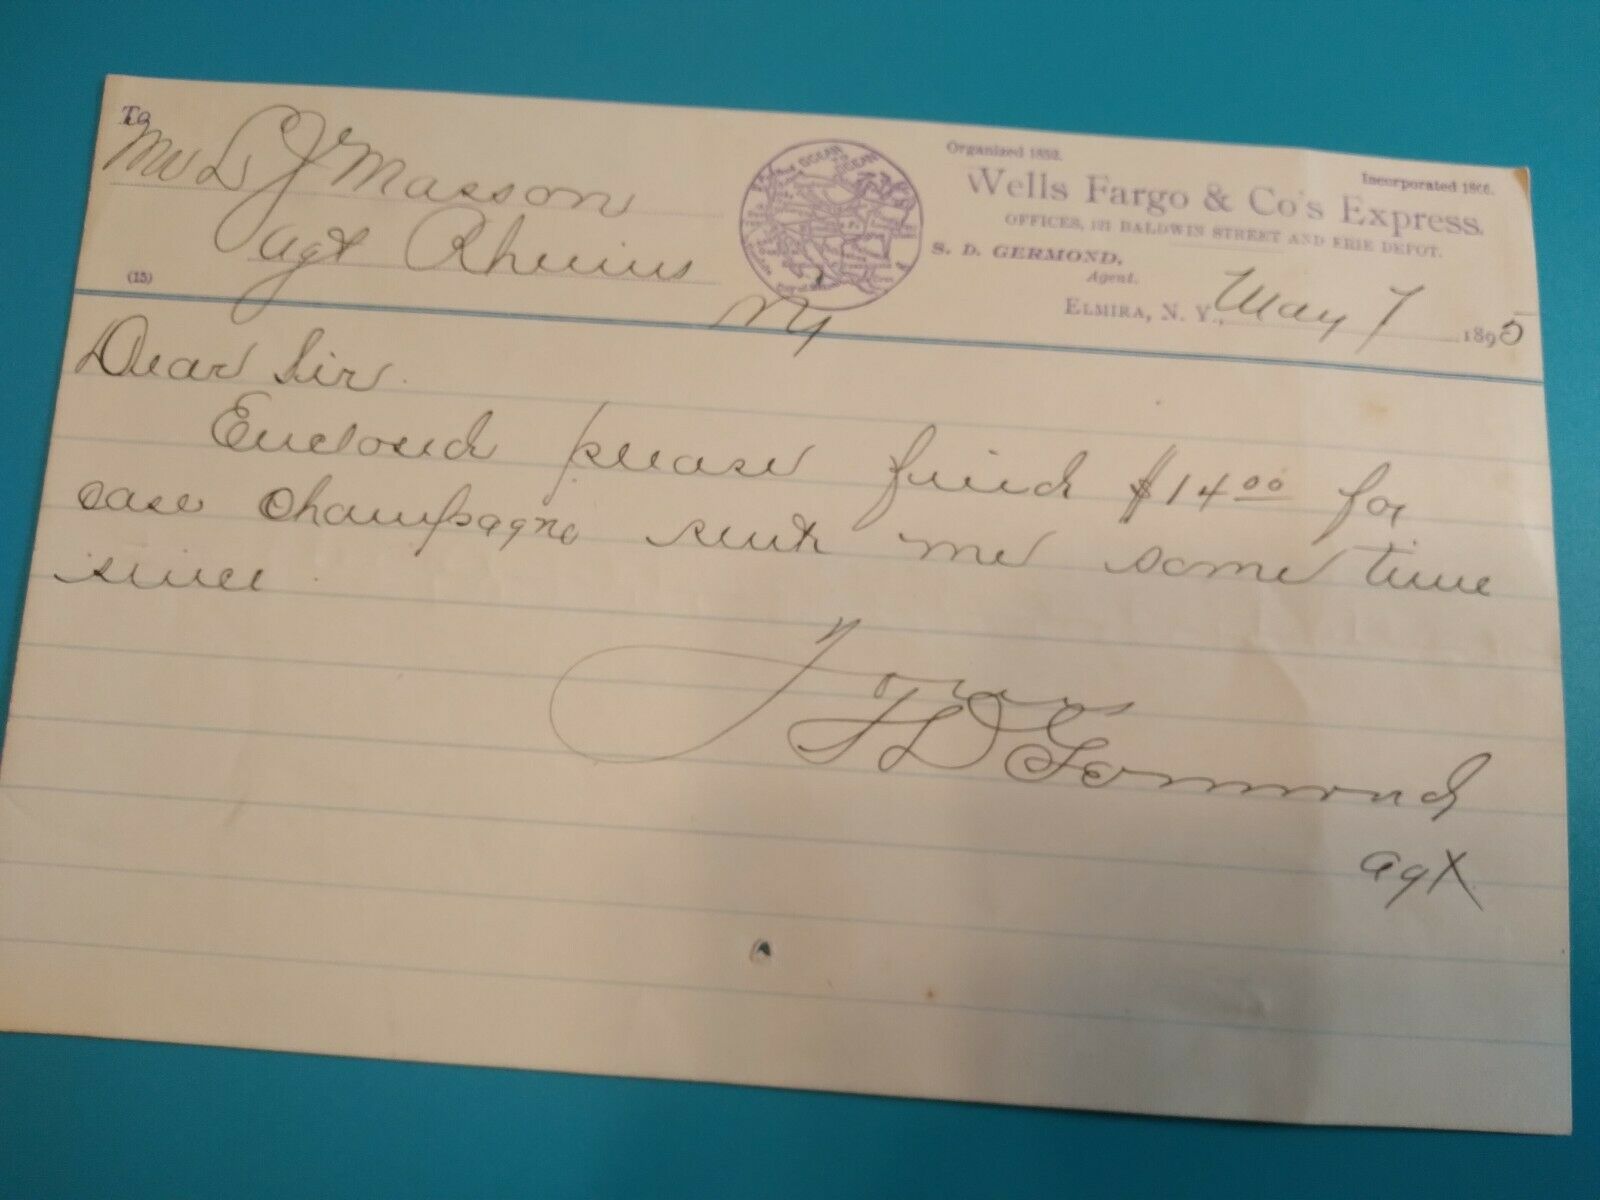 To
Mr D J Masson
agt Rheims
N Y
(15)
OCEAN TO OCEAN
Organized 1852.
Incorporated 1866.
Wells Fargo & Co's Express.
OFFICES, 121 BALDWIN STREET AND ERIE DEPOT.
S. D. GERMOND,
Agent.
ELMIRA, N. Y., May 7 1895
Dear Sir.
Enclosed please find $14.00 for
case Champagne sent me some time
since.
Yours
S D Germond
agt